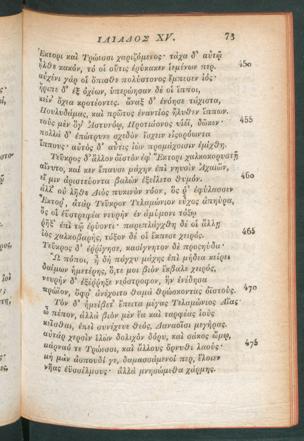 ΙΛΙΑΔΟΣ XV. 73
Ἕκτορι καὶ Τρώεσσι χαριζόμενος· τάχα δ' αὐτῷ
ἦλθε κακὸν, τό οἱ οὔτις ἐρύκακεν ἱεμένων περ.
αὐχένι γάρ οἱ ὄπισθε πολύστονος ἔμπεσεν ἰός· 450
ἤριπε δ' ἐξ ὀχέων, ὑπερώησαν δέ οἱ ἵπποι,
κείν' ὄχεα κροτέοντες. ἄναξ δ' ἐνόησε τάχιστα,
Πουλυδάμας, καὶ πρῶτος ἐναντίος ἤλυθεν ἵππων.
τοὺς μὲν ὅγ' Ἀστυνόῳ, Προτιάονος υἱέϊ, δῶκεν· 455
πολλὰ δ' ἐπώτρυνε σχεδὸν ἴσχειν εἰσορόωντα
ἵππους· αὐτὸς δ' αὖτις ἰὼν προμάχοισιν ἐμίχθη.
Τεῦκρος δ' ἄλλον ὀϊστὸν ἐφ' Ἕκτορι χαλκοκορυστῇ
αἴνυτο, καί κεν ἔπαυσε μάχην ἐπὶ νηυσὶν Ἀχαιῶν,
εἴ μιν ἀριστεύοντα βαλὼν ἐξείλετο θυμόν. 460
ἀλλ' οὐ λῆθε Διὸς πυκινὸν νόον, ὅς ῥ' ἐφύλασσεν
Ἕκτορ', ἀτὰρ Τεῦκρον Τελαμώνιον εὖχος ἀπηύρα,
ὅς οἱ ἐϋστρεφέα νευρὴν ἐν ἀμύμονι τόξῳ
ῥῆξ' ἐπὶ τῷ ἐρύοντι· παρεπλάγχθη δέ οἱ ἄλλῃ
ἰὸς χαλκοβαρής, τόξον δέ οἱ ἔκπεσε χειρός. 465
Τεῦκρος δ' ἐῤῥίγησε, κασίγνητον δὲ προσηύδα·
Ὢ πόποι, ἦ δὴ πάγχυ μάχης ἐπὶ μήδεα κείρει
δαίμων ἡμετέρης, ὅ,τε μοι βιὸν ἔκβαλε χειρός,
νευρὴν δ' ἐξέῤῥηξε νεόστροφον, ἣν ἐνέδησα
πρώϊον, ὄφρ' ἀνέχοιτο θαμὰ θρώσκοντας ὀϊστούς. 470
Τὸν δ' ἠμείβετ' ἔπειτα μέγας Τελαμώνιος Αἴας·
ὦ πέπον, ἀλλὰ βιὸν μὲν ἔα καὶ ταρφέας ἰοὺς
κεῖσθαι, ἐπεὶ συνέχευε θεός, Δαναοῖσι μεγήρας.
αὐτὰρ χερσὶν ἑλὼν δολιχὸν δόρυ, καὶ σάκος ὤμῳ,
μάρναό τε Τρώεσσι, καὶ ἄλλους ὄρνυθι λαούς· 475
μὴ μὰν ἀσπουδί γε, δαμασσάμενοί περ, ἕλοιεν
νῆας ἐϋσσέλμους· ἀλλὰ μνησώμεθα χάρμης.